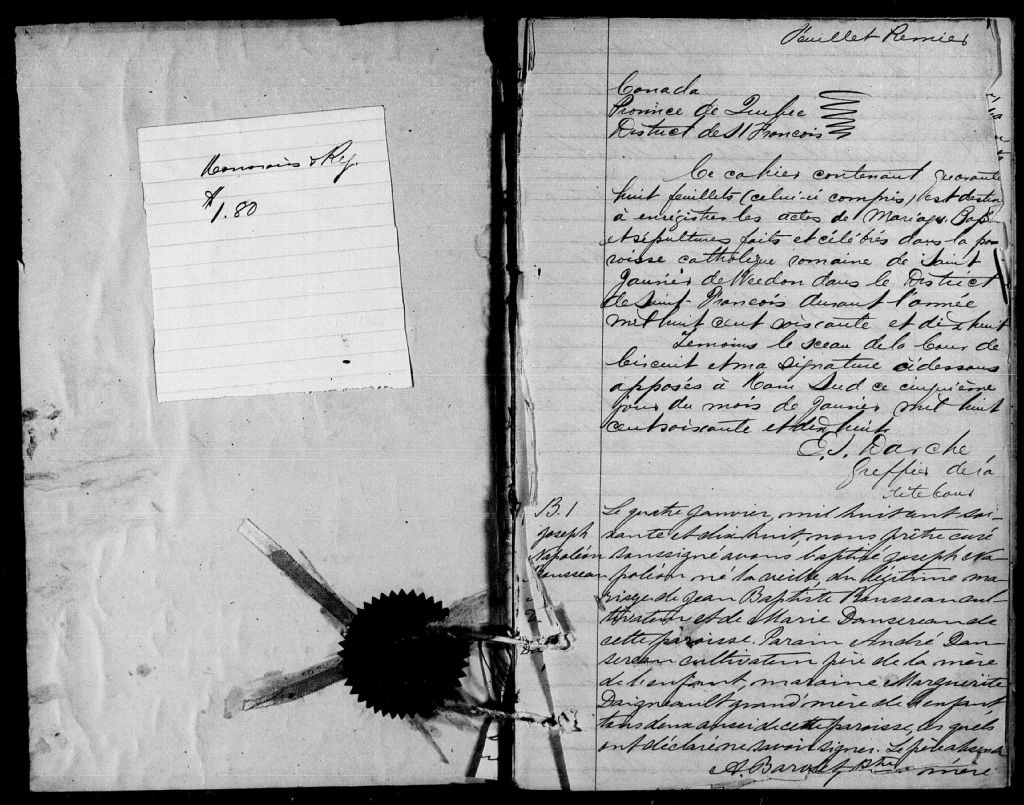 Honoraires & Reg.
$1.80
Feuillet Premier
Canada
Province de Quebec
District de St Francois
Ce cahier contenant quarante
huit feuillets (celui-ci compris) est destin
à enrégistrer les actes de Mariages, Bap
et sépultures faits et célébrés dans la pa
roisse catholique romaine de Saint
Janvier de Weedon dans le District
de Saint-Francois durant l'année
mil huit cent soixante et dix huit
Temoins le sceau de la Cour de
Circuit et ma signature ci dessous
apposés à Ham Sud ce cinquième
jour du mois de Janvier mil huit
cent soixante et dix huit
E. J. Darche
Greffier de la
dite Cour
B. 1
Joseph
Napoléon
Rousseau
Le quatre janvier, mil huit cent soi-
xante et dix huit, nous prêtre curé
soussigné avons baptisé Joseph Na
poléon né la veille, du légitime ma
riage de Jean Baptiste Rousseau cul-
tivateur et de Marie Dansereau de
cette paroisse. Parain André Dan
sereau cultivateur père de la mère
de l'enfant, maraine Marguerite
Daigneault grand'mère de l'enfant
tous deux aussi de cette paroisse, lesquels
ont déclaré ne savoir signer. Le père absent
A. Barolet ptre